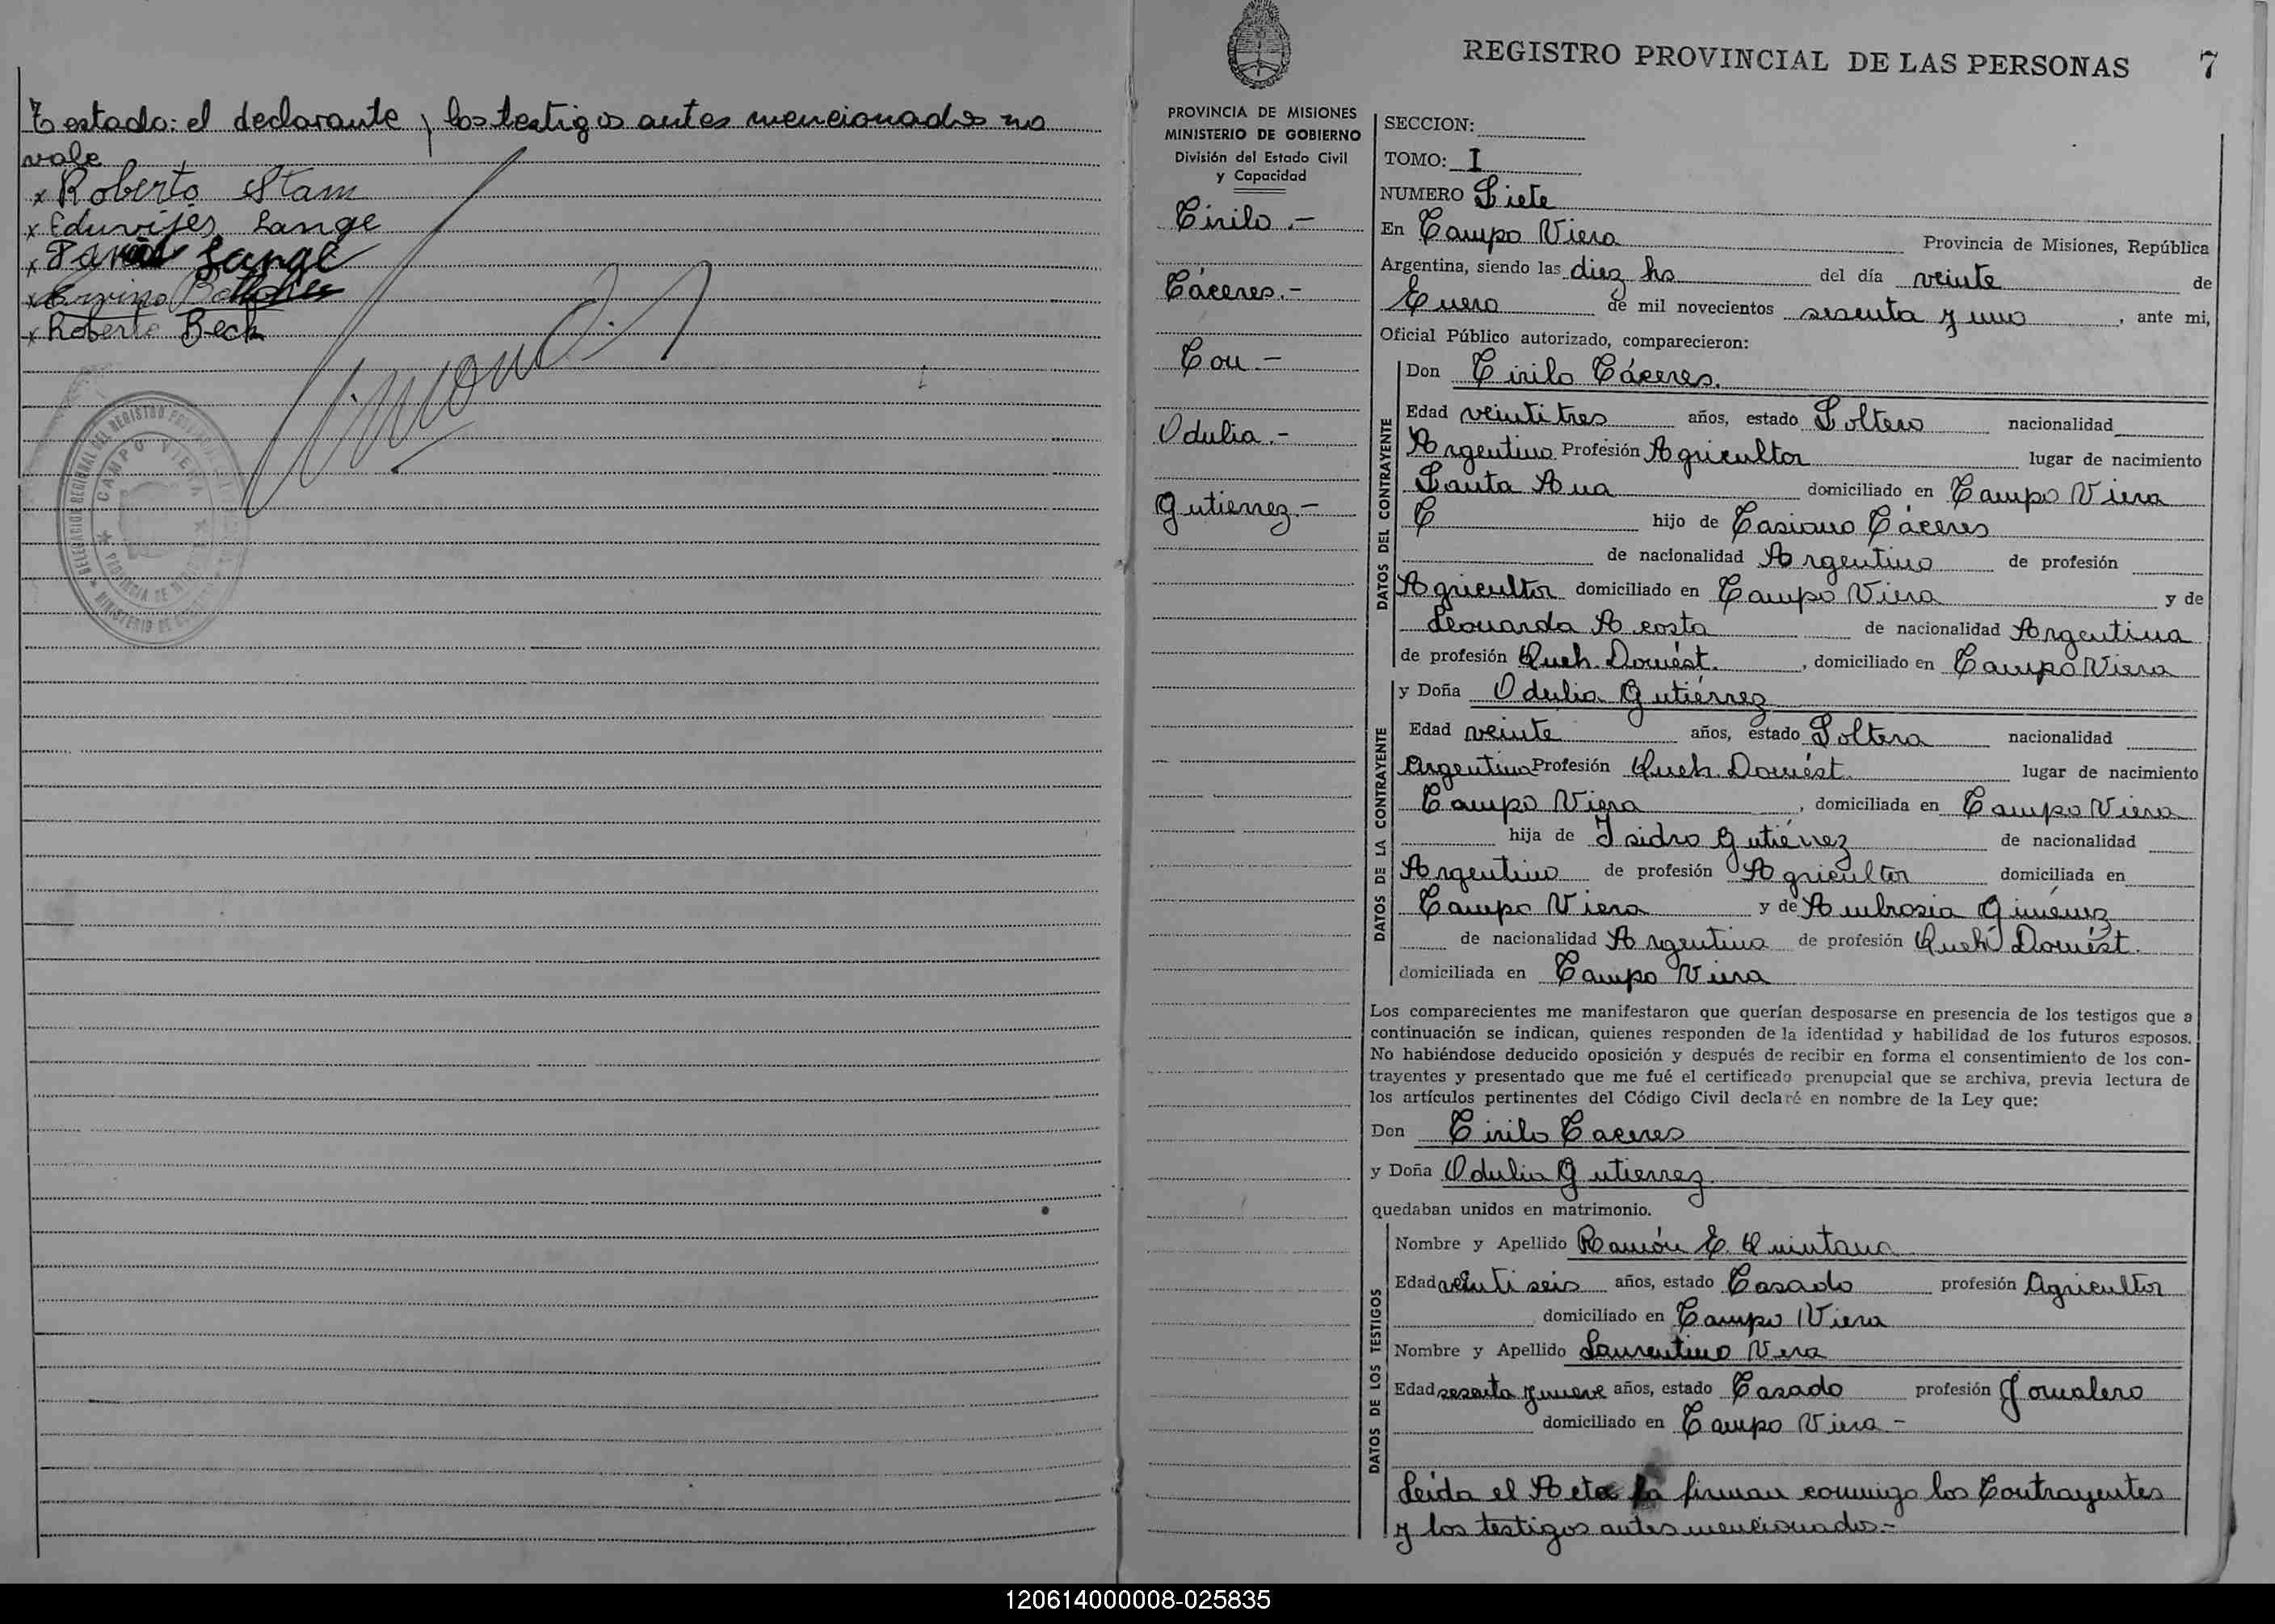 Testado: el declarante y los testigos antes mencionados no
vale
x Roberto Stam
x Eduvijes Lange
x Lange
x Roberto Beck
DELEGACION REGIONAL DEL REGISTRO PROVINCIAL
CAMPO VIERA
PROVINCIA DE MISIONES
MINISTERIO DE GOBIERNO
REGISTRO PROVINCIAL DE LAS PERSONAS 7
PROVINCIA DE MISIONES
MINISTERIO DE GOBIERNO
División del Estado Civil
y Capacidad
Cirilo.-
Cáceres.-
Con -
Odulia.-
Gutierrez.-
SECCION:
TOMO: I
NUMERO Siete
En Campo Viera Provincia de Misiones, República
Argentina, siendo las diez hs del día veinte de
Enero de mil novecientos sesenta y uno, ante mi,
Oficial Público autorizado, comparecieron:
DATOS DEL CONTRAYENTE
Don Cirilo Cáceres.
Edad veintitres años, estado Soltero nacionalidad
Argentino Profesión Agricultor lugar de nacimiento
Santa Ana domiciliado en Campo Viera
C hijo de Casiano Cáceres
de nacionalidad Argentino de profesión
Agricultor domiciliado en Campo Viera y de
Leonarda Acosta de nacionalidad Argentina
de profesión Queh. Domést., domiciliado en Campo Viera
DATOS DE LA CONTRAYENTE
y Doña Odulia Gutiérrez
Edad veinte años, estado Soltera nacionalidad
Argentina Profesión Queh. Domést. lugar de nacimiento
Campo Viera, domiciliada en Campo Viera
hija de Isidro Gutiérrez de nacionalidad
Argentino de profesión Agricultor domiciliada en
Campo Viera y de Ambrosia Giménez
de nacionalidad Argentina de profesión Queh. Domést.
domiciliada en Campo Viera
Los comparecientes me manifestaron que querían desposarse en presencia de los testigos que a
continuación se indican, quienes responden de la identidad y habilidad de los futuros esposos.
No habiéndose deducido oposición y después de recibir en forma el consentimiento de los con-
trayentes y presentado que me fué el certificado prenupcial que se archiva, previa lectura de
los artículos pertinentes del Código Civil declaré en nombre de la Ley que:
Don Cirilo Caceres
y Doña Odulia Gutierrez
quedaban unidos en matrimonio.
DATOS DE LOS TESTIGOS
Nombre y Apellido Ramón E. Quintana
Edad veintiseis años, estado Casado profesión Agricultor
domiciliado en Campo Viera
Nombre y Apellido Laurentino Vera
Edad sesenta y nueve años, estado Casado profesión Jornalero
domiciliado en Campo Viera -
Leida el Acta la firman conmigo los Contrayentes
y los testigos antes mencionados.-
120614000008-025835